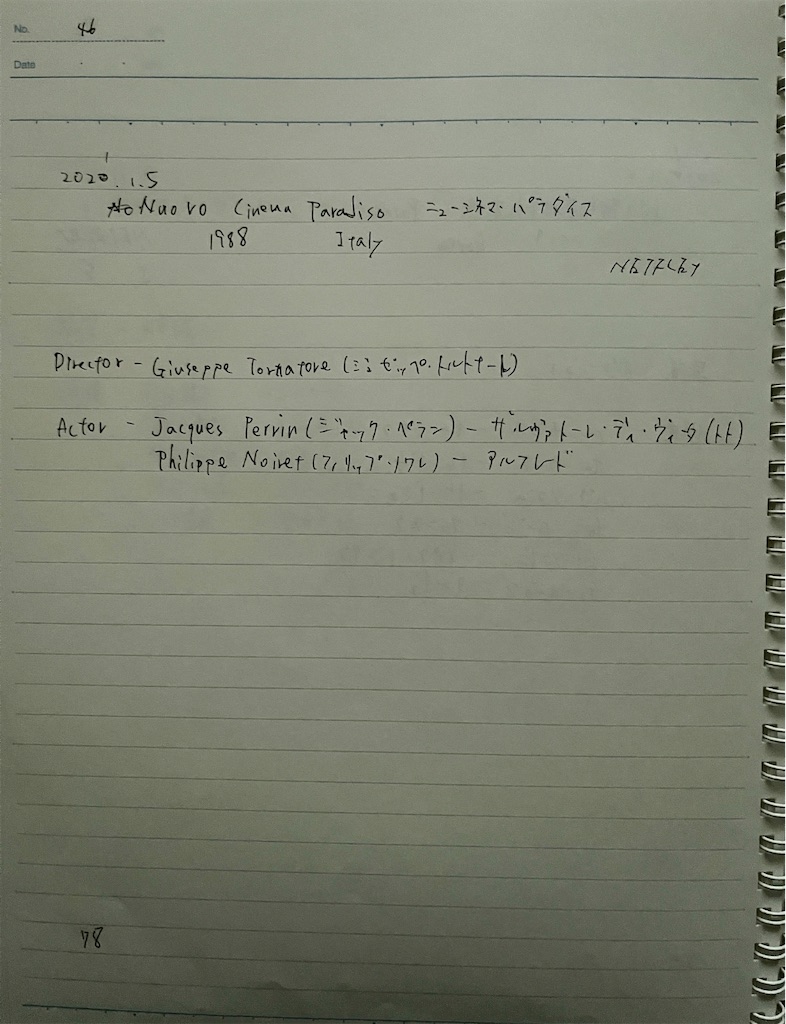 No. 46
Date
2020.1.5
Nuovo Cinema Paradiso ニュー・シネマ・パラダイス
1988 Italy
NETFLEX
Director - Giuseppe Tornatore (ジュゼッペ・トルナトーレ)
Actor - Jacques Perrin (ジャック・ペラン) - サルヴァトーレ・ディ・ヴィータ (トト)
Philippe Noiret (フィリップ・ノワレ) - アルフレード
78